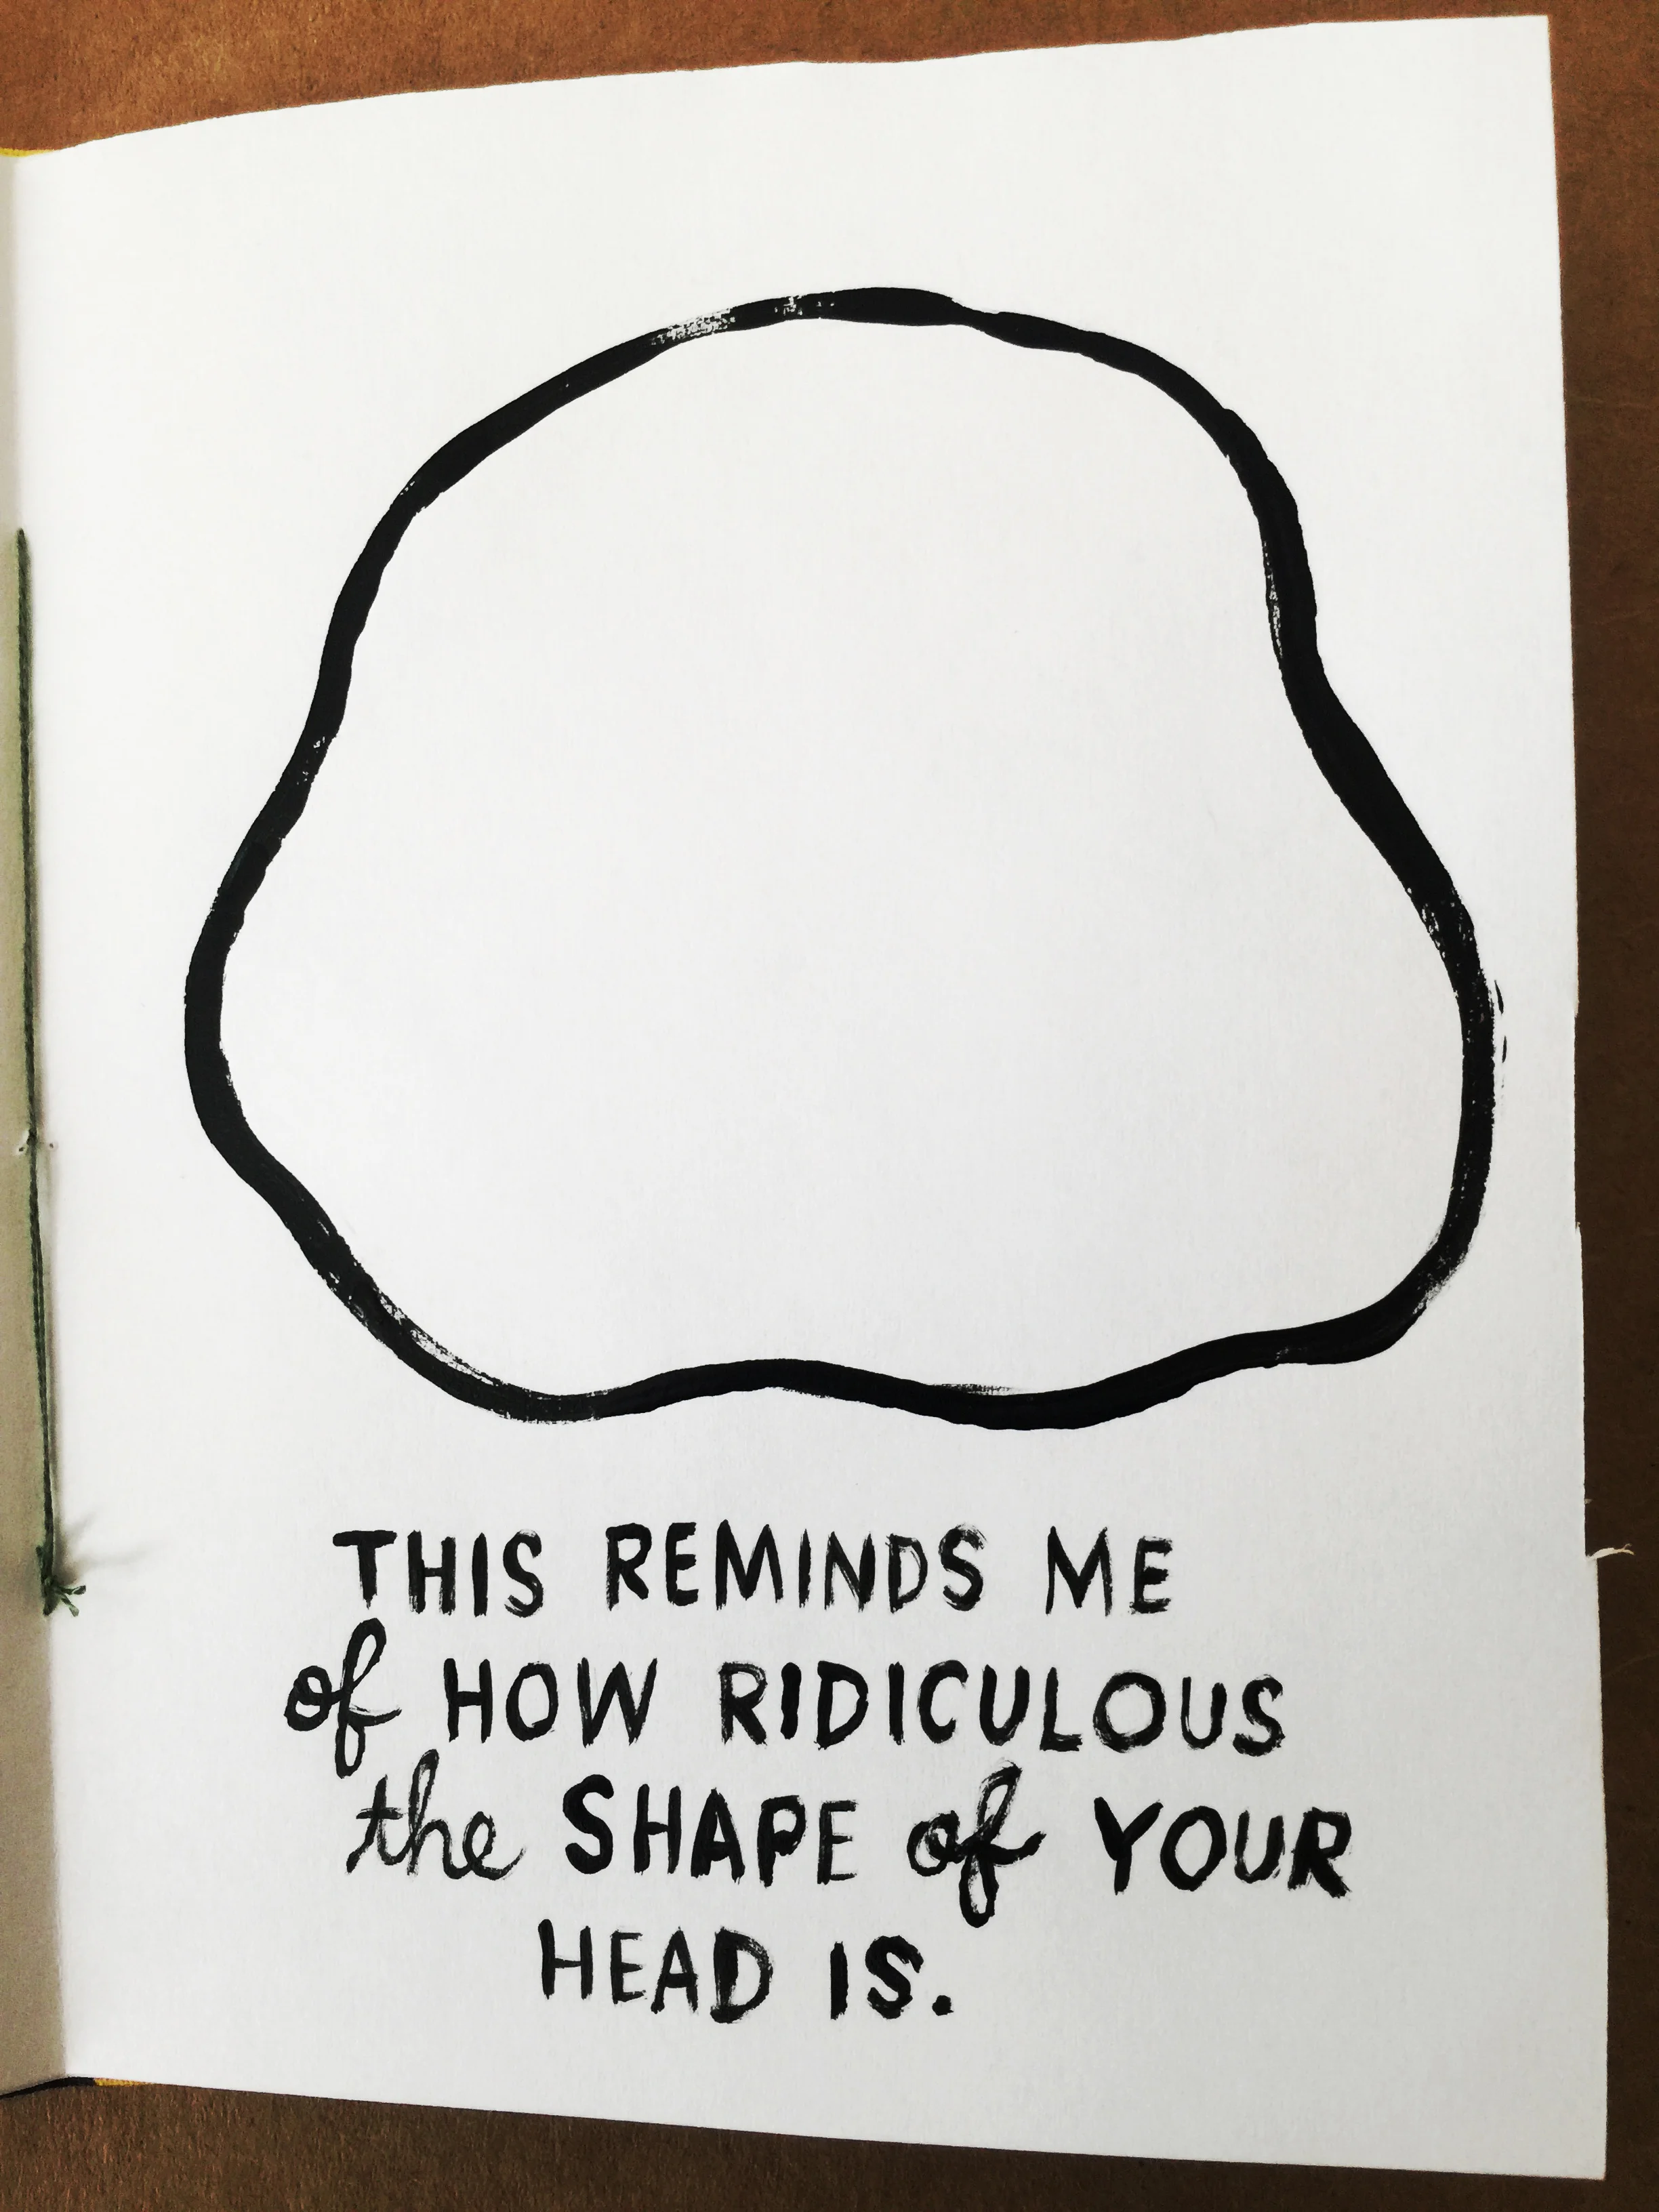 THIS REMINDS ME
of HOW RIDICULOUS
the SHAPE of YOUR
HEAD IS.